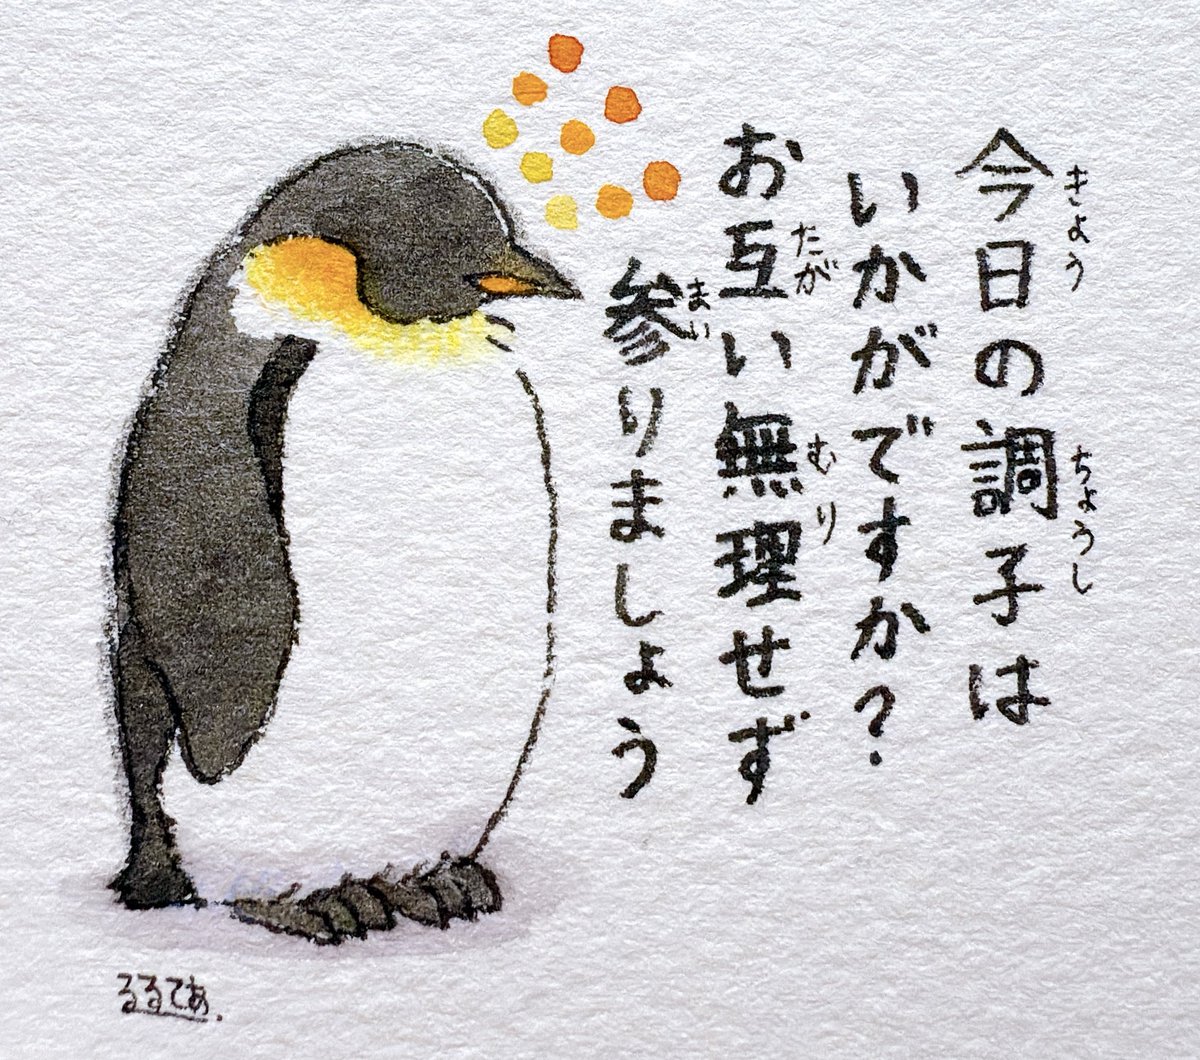 今日の調子は
きょう
ちょうし
いかがですか?
お互い無理せず
たが
むり
参りましょう
まい
るるてあ.